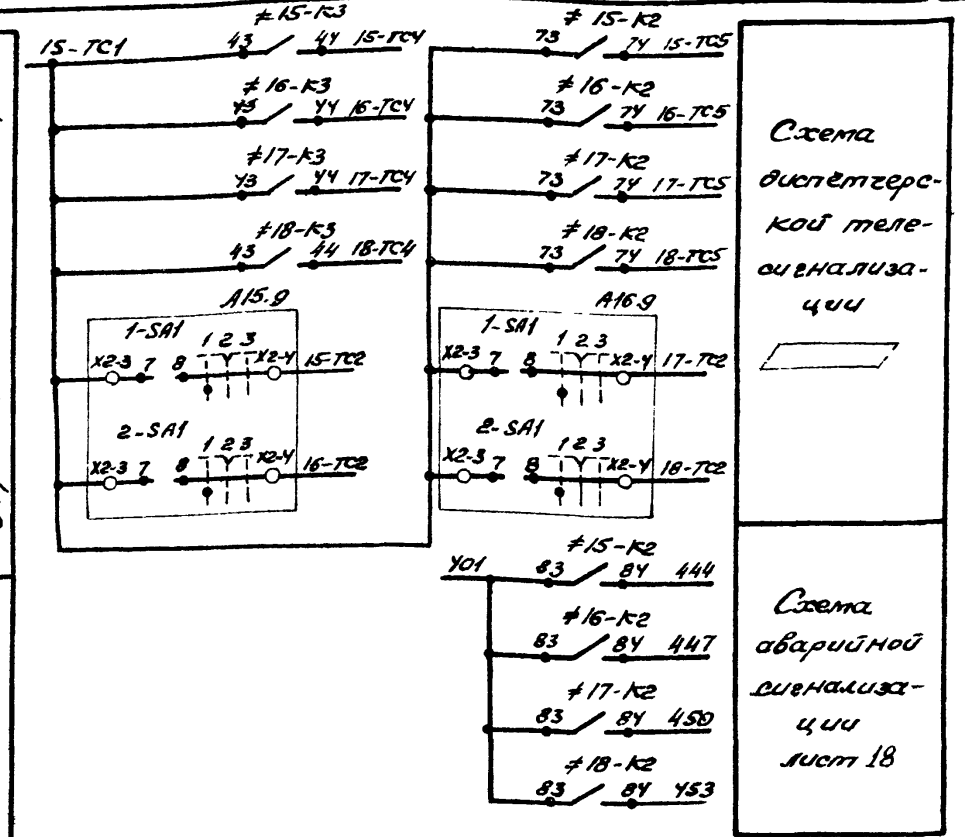 ≠15-К3
15-ТС1 43 44 15-ТС4
≠16-К3
43 44 16-ТС4
≠17-К3
43 44 17-ТС4
≠18-К3
43 44 18-ТС4
А15.9
1-SA1
1 2 3
X2-3 7 8 X2-4 15-ТС2
2-SA1
1 2 3
X2-3 7 8 X2-4 16-ТС2
≠15-К2
73 74 15-ТС5
≠16-К2
73 74 16-ТС5
≠17-К2
73 74 17-ТС5
≠18-К2
73 74 18-ТС5
А16.9
1-SA1
1 2 3
X2-3 7 8 X2-4 17-ТС2
2-SA1
1 2 3
X2-3 7 8 X2-4 18-ТС2
≠15-К2
401 83 84 444
≠16-К2
83 84 447
≠17-К2
83 84 450
≠18-К2
83 84 453
Схема
диспетчерс-
кой теле-
сигнализа-
ции
Схема
аварийной
сигнализа-
ции
лист 18